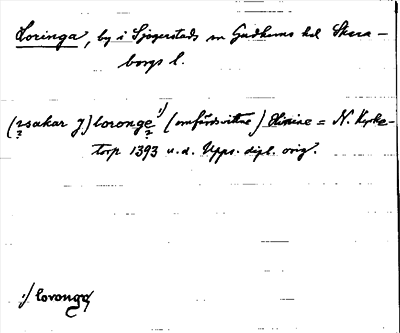 Loringa, by i Sjogerstads sn Gudhems hd Skara-
borgs l.
(isakar J.) loronge 1) (omfärdsvittne) = N. Kyrke-
torp 1393 u.d. Upps. dipl. orig.
1) loronga